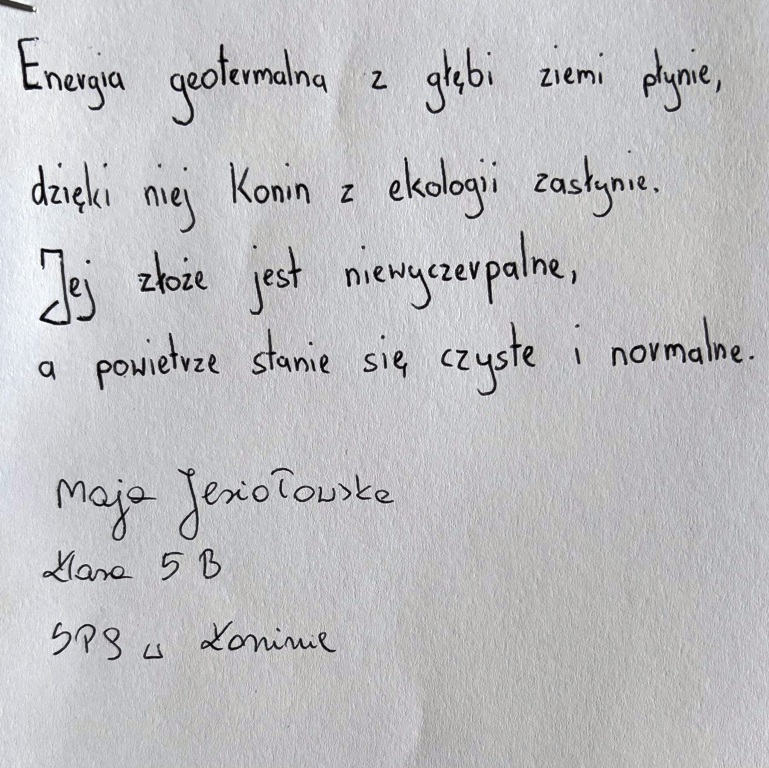 Energia geotermalna z głębi ziemi płynie,
dzięki niej Konin z ekologii zasłynie.
Jej złoże jest niewyczerpalne,
a powietrze stanie się czyste i normalne.
Maja Jesiołowska
klasa 5 B
w Koninie